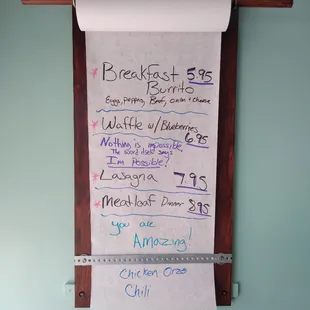 * Breakfast 5.95
Burrito
Eggs, peppers, Beef, onion + cheese
* Waffle w/ Blueberries
6.95
Nothing is impossible,
The word itself says
I'm Possible!
* Lasagna 7.95
* Meatloaf Dinner 8.95
you are
Amazing!
Chicken Orzo
Chili